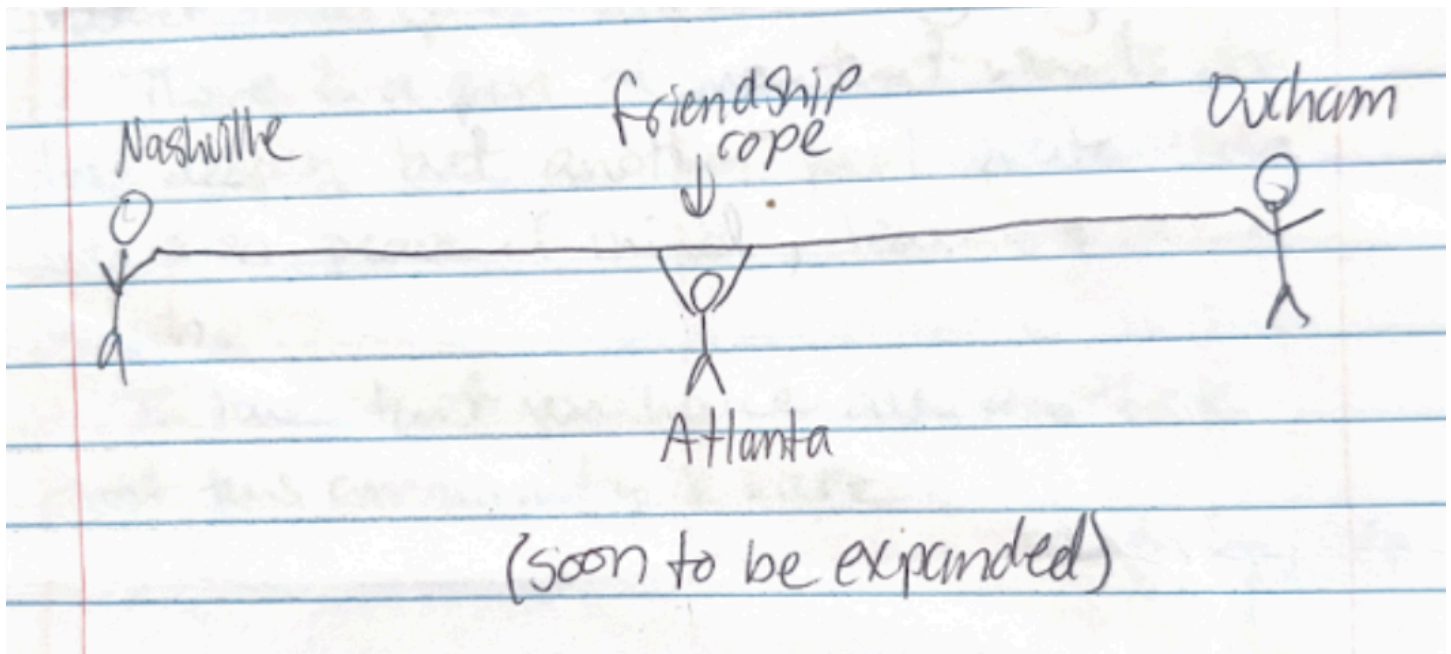 Nashville
friendship
rope
Durham
Atlanta
(soon to be expanded)